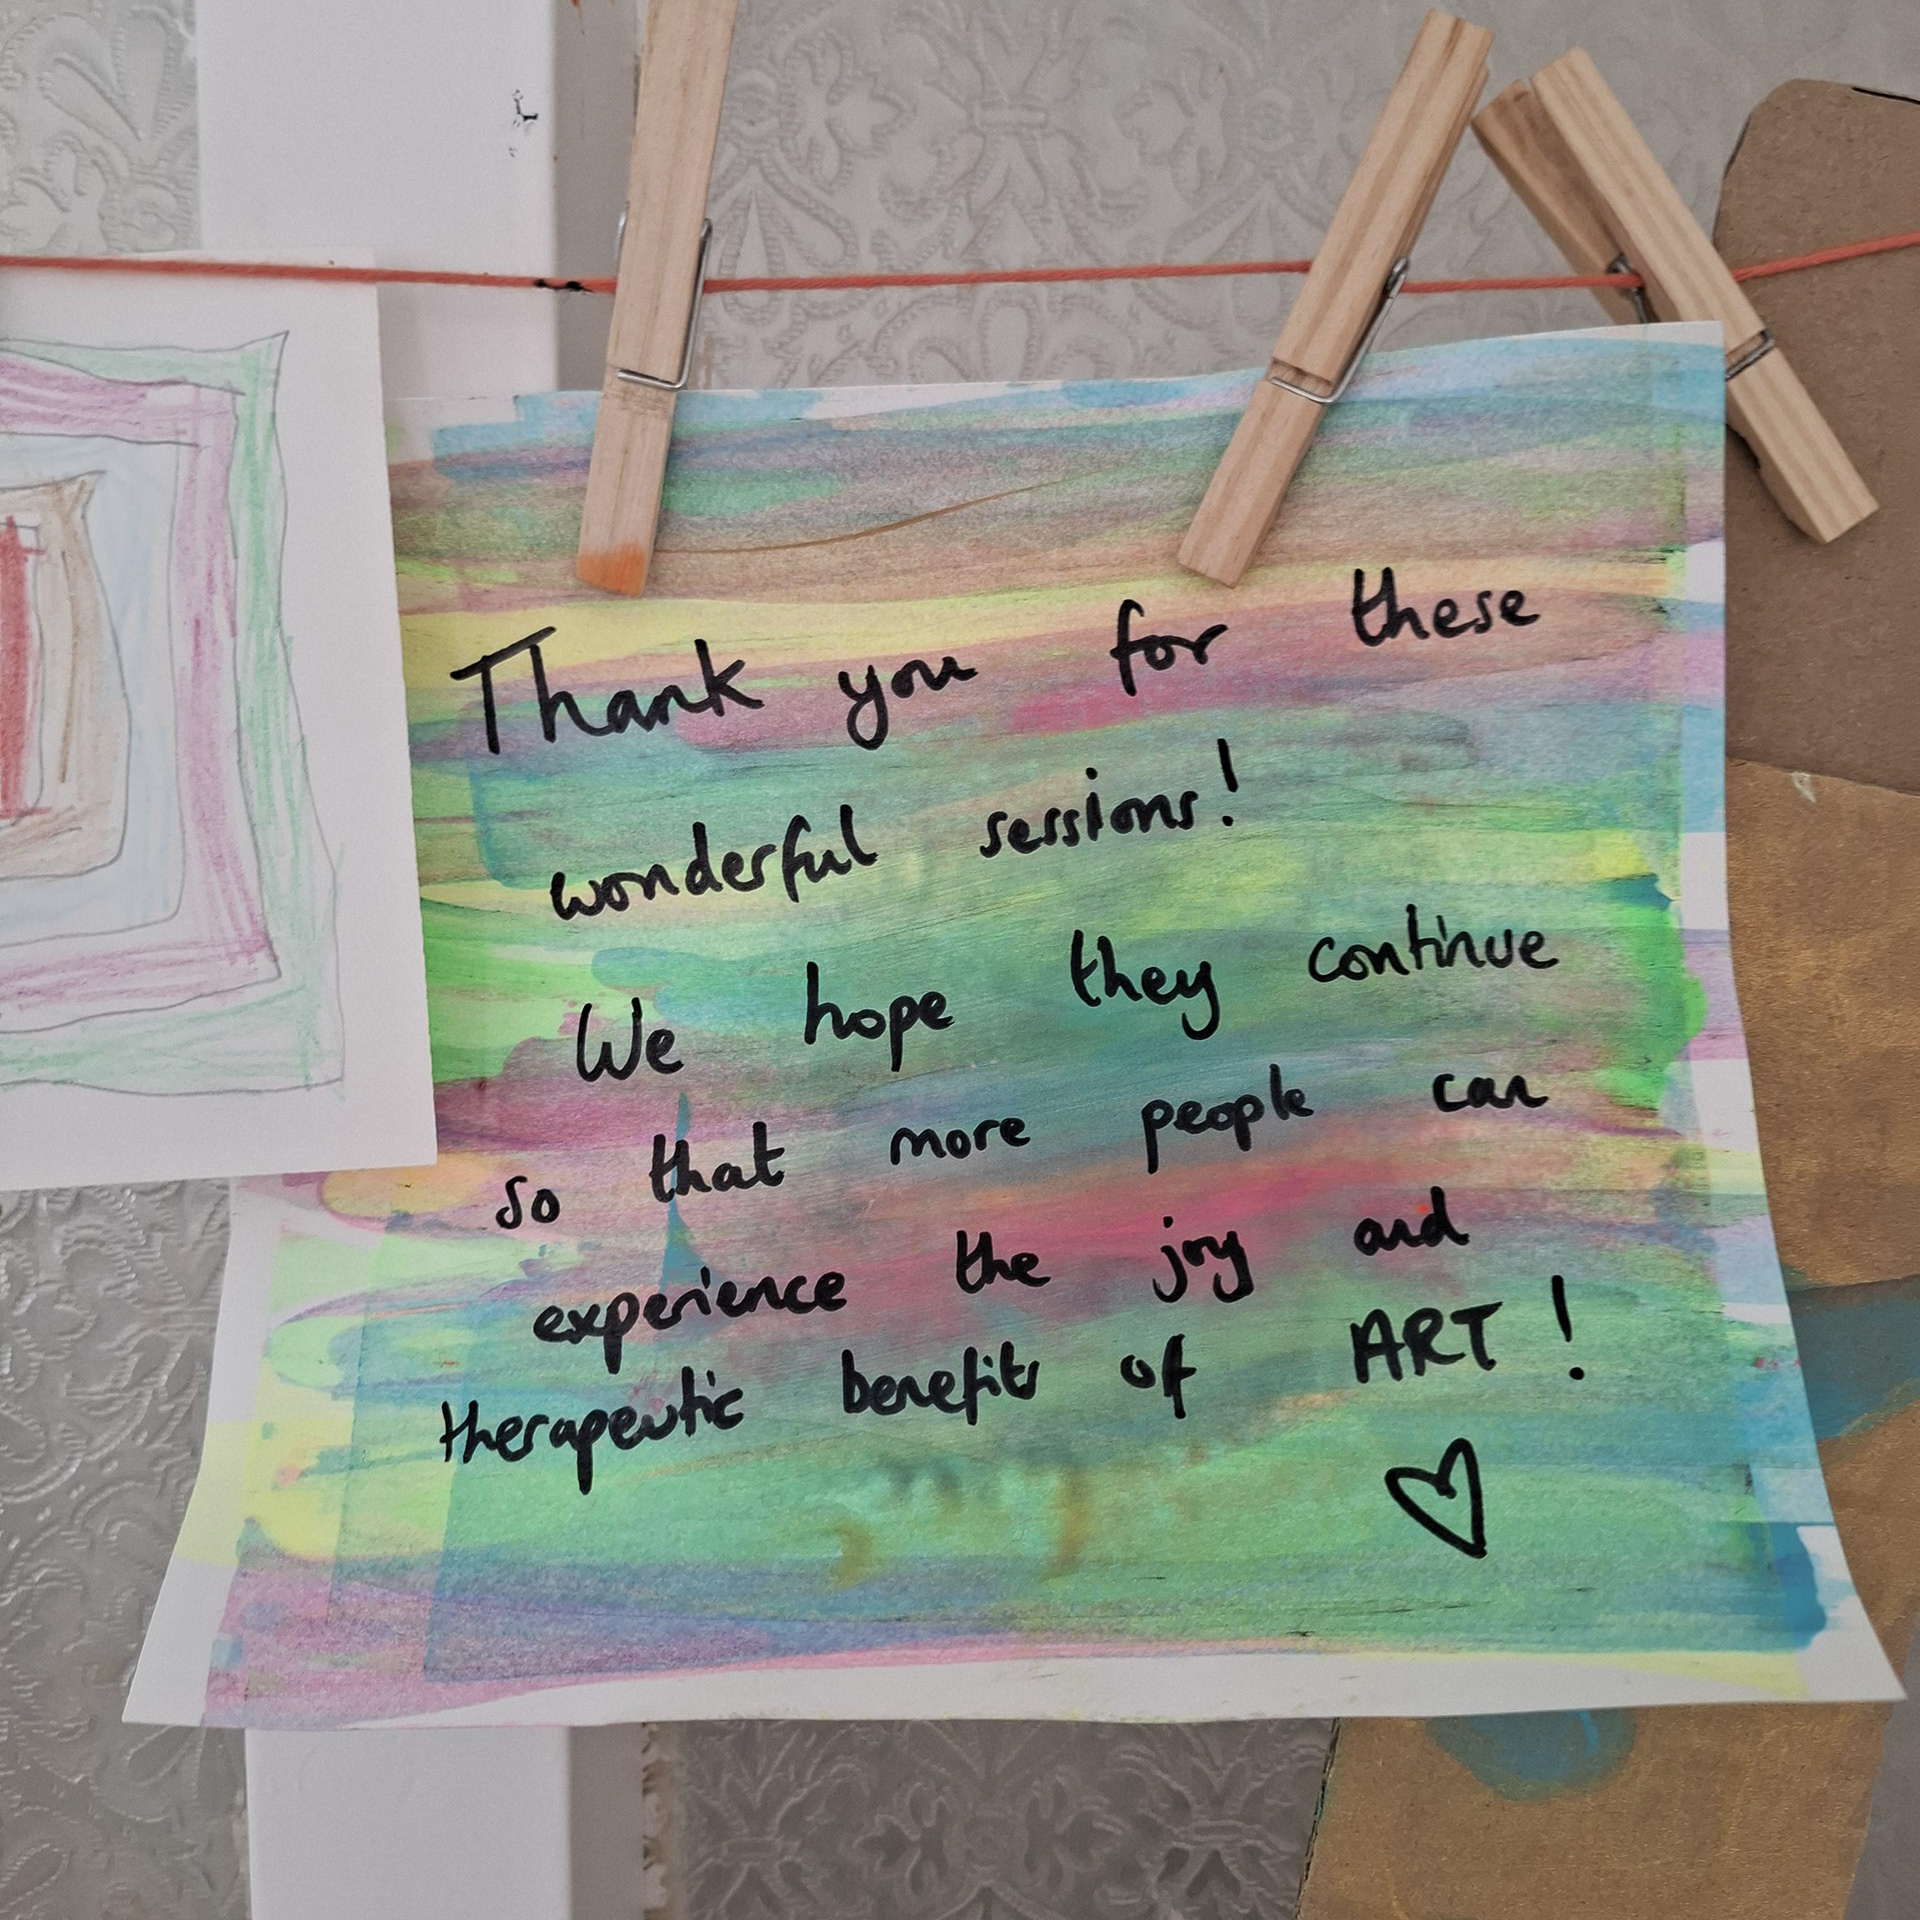 Thank you for these
wonderful sessions!
We hope they continue
so that more people can
experience the joy and
therapeutic benefits of ART!